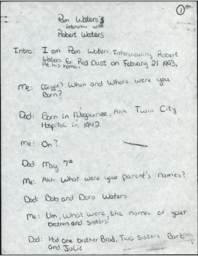 Pam Waters's
interview with
Robert Waters
Intro: I am Pam Waters, Interviewing Robert
Waters for Red Dust on February 21 1993,
At his home.
Me: When and Where were you
Born?
Dad: Born in Ahh Twin City
Hospital in 1942.
Me: On?
Dad: May 7th
Me: Ahh What were your parent's names?
Dad: Bob and Dora Waters
Me: Um, What were, the names of your
brothers and sisters?
Dad: Had one brother Brad, Two Sisters Barb
and Julie